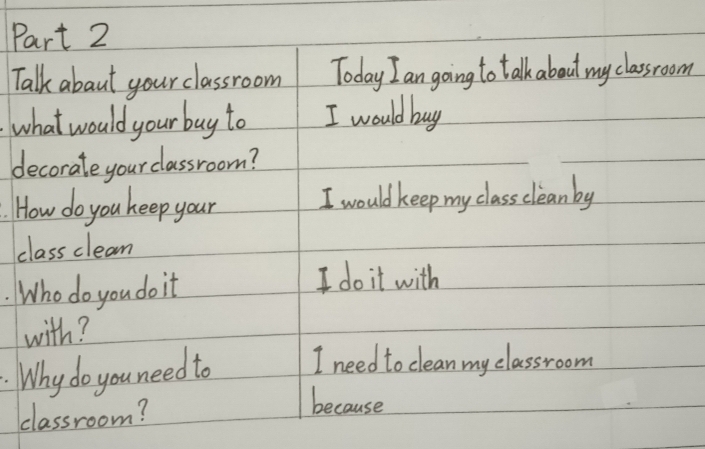 Part 2
Talk abaut your classroom
Today I an going to talk about my classroom
. what would your buy to
I would buy
decorate your classroom?
. How do you keep your
I would keep my class clean by
class clean
. Who do you do it
I do it with
with?
. Why do you need to
I need to clean my classroom
classroom?
because